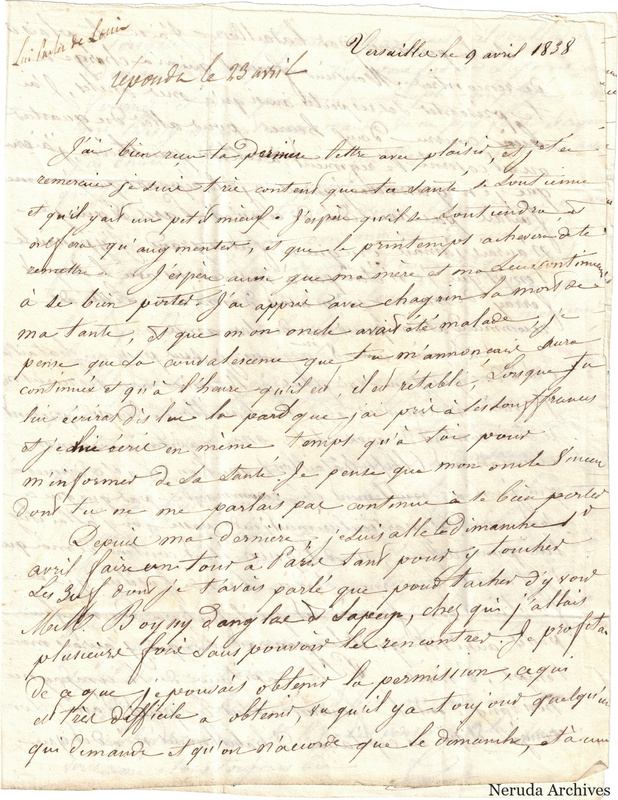 Lui parler de Louis
Versailles le 9 avril 1838
repondu le 23 avril
J'ai bien recu ta derniere lettre avec plaisir, et je t'en
remercie je suis tres content que ta santé se soutienne
et qu'il y ait un petit mieux. J'espère qu'il se soutiendra et
ne fera qu'augmenter, et que le printemps achevera de te
remettre. J'espère aussi que ma mère et ma soeur continuent
à se bien porter. J'ai appris avec chagrin la mort de
ma tante, et que mon oncle avait été malade, je
pense que la convalescence que tu m'annonçais aura
continué et qu'à l'heure qu'il est, il est rétabli, Lorsque tu
lui écriras dis lui la part que j'ai pris à ses souffrances
et je lui écris en même temps qu'à toi pour
m'informer de sa santé. Je pense que mon oncle
dont tu ne me parlais pas continue à se bien porter
Depuis ma dernière, je suis allé le dimanche 1er
avril faire un tour à Paris tant pour y toucher
Les dont je t'avais parlé que pour tacher d'y voir
Boyssy d'anglas et chez qui j'allais
plusieurs fois sans pouvoir les rencontrer. Je profitai
de ce que je pouvais obtenir la permission, ce qui
est très difficile a obtenir, vu qu'il y a toujours quelqu'un
qui demande et qu'on n'accorde que le dimanche, et à un
Neruda Archives